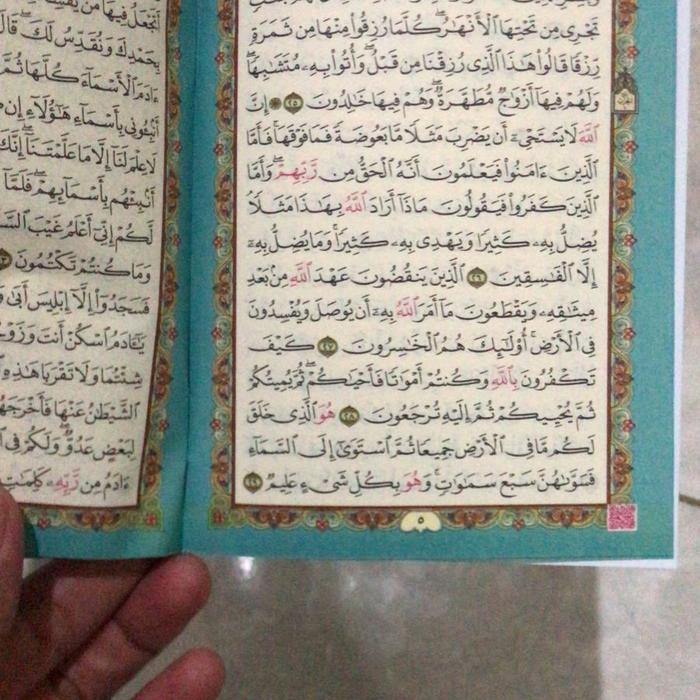 تَجْرِى مِن تَحْتِهَا ٱلْأَنْهَٰرُ ۖ كُلَّمَا رُزِقُوا۟ مِنْهَا مِن ثَمَرَةٍ
رِّزْقًا قَالُوا۟ هَٰذَا ٱلَّذِى رُزِقْنَا مِن قَبْلُ ۖ وَأُتُوا۟ بِهِۦ مُتَشَٰبِهًا ۖ
وَلَهُمْ فِيهَآ أَزْوَٰجٌ مُّطَهَّرَةٌ ۖ وَهُمْ فِيهَا خَٰلِدُونَ ٢٥ ۞ إِنَّ
ٱللَّهَ لَا يَسْتَحْىِۦٓ أَن يَضْرِبَ مَثَلًا مَّا بَعُوضَةً فَمَا فَوْقَهَا ۚ فَأَمَّا
ٱلَّذِينَ ءَامَنُوا۟ فَيَعْلَمُونَ أَنَّهُ ٱلْحَقُّ مِن رَّبِّهِمْ ۖ وَأَمَّا
ٱلَّذِينَ كَفَرُوا۟ فَيَقُولُونَ مَاذَآ أَرَادَ ٱللَّهُ بِهَٰذَا مَثَلًا ۘ
يُضِلُّ بِهِۦ كَثِيرًا وَيَهْدِى بِهِۦ كَثِيرًا ۚ وَمَا يُضِلُّ بِهِۦٓ
إِلَّا ٱلْفَٰسِقِينَ ٢٦ ٱلَّذِينَ يَنقُضُونَ عَهْدَ ٱللَّهِ مِنۢ بَعْدِ
مِيثَٰقِهِۦ وَيَقْطَعُونَ مَآ أَمَرَ ٱللَّهُ بِهِۦٓ أَن يُوصَلَ وَيُفْسِدُونَ
فِى ٱلْأَرْضِ ۚ أُو۟لَٰٓئِكَ هُمُ ٱلْخَٰسِرُونَ ٢٧ كَيْفَ
تَكْفُرُونَ بِٱللَّهِ وَكُنتُمْ أَمْوَٰتًا فَأَحْيَٰكُمْ ۖ ثُمَّ يُمِيتُكُمْ
ثُمَّ يُحْيِيكُمْ ثُمَّ إِلَيْهِ تُرْجَعُونَ ٢٨ هُوَ ٱلَّذِى خَلَقَ
لَكُم مَّا فِى ٱلْأَرْضِ جَمِيعًا ثُمَّ ٱسْتَوَىٰٓ إِلَى ٱلسَّمَآءِ
فَسَوَّىٰهُنَّ سَبْعَ سَمَٰوَٰتٍ ۚ وَهُوَ بِكُلِّ شَىْءٍ عَلِيمٌ ٢٩
٥
أَتَجْعَلُ فِيهَا مَن
بِحَمْدِكَ وَنُقَدِّسُ لَكَ ۖ قَالَ
ءَادَمَ ٱلْأَسْمَآءَ كُلَّهَا ثُمَّ
أَنۢبِـُٔونِى بِأَسْمَآءِ هَٰٓؤُلَآءِ إِن
لَا عِلْمَ لَنَآ إِلَّا مَا عَلَّمْتَنَآ ۖ إِنَّكَ
أَنۢبِئْهُم بِأَسْمَآئِهِمْ ۖ فَلَمَّآ
لَّكُمْ إِنِّىٓ أَعْلَمُ غَيْبَ
وَمَا كُنتُمْ تَكْتُمُونَ
فَسَجَدُوٓا۟ إِلَّآ إِبْلِيسَ أَبَىٰ
يَٰٓـَٔادَمُ ٱسْكُنْ أَنتَ
شِئْتُمَا وَلَا تَقْرَبَا هَٰذِهِ
ٱلشَّيْطَٰنُ عَنْهَا
لِبَعْضٍ عَدُوٌّ ۖ وَلَكُمْ فِى
ءَادَمُ مِن رَّبِّهِۦ كَلِمَٰتٍ